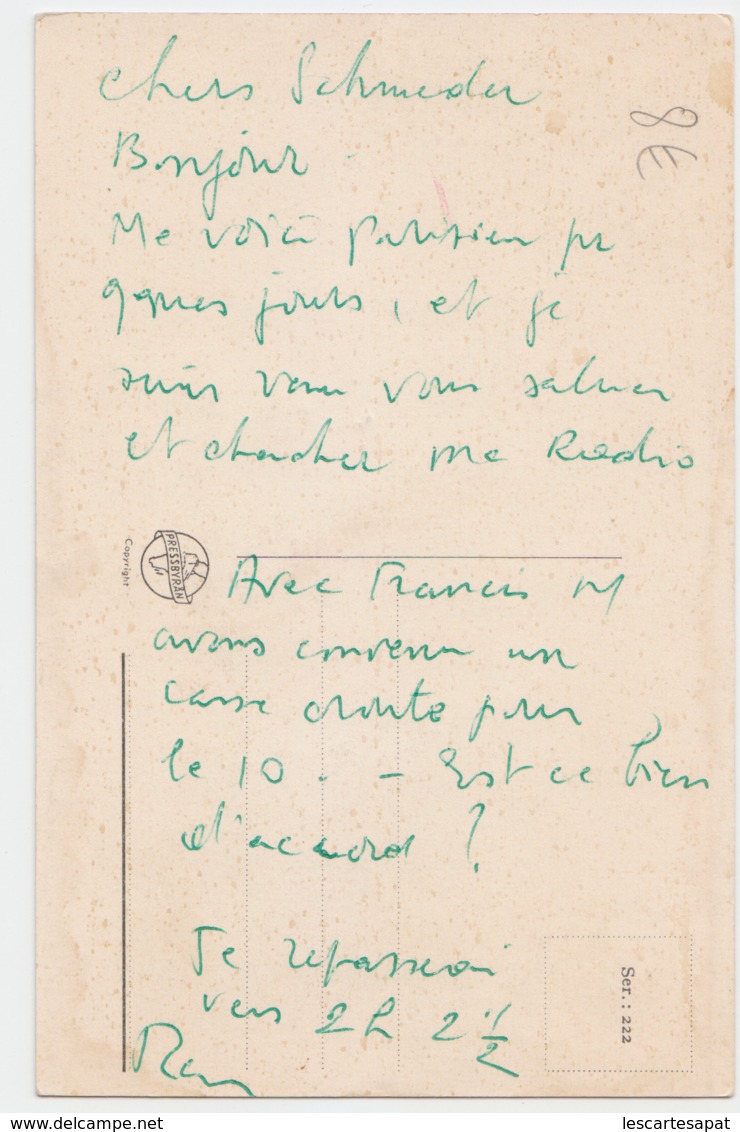 Chers Schmeder
8 E
Bonjour.
Me voici parisien pr
qques jours, et je
suis venu vous saluer
et chercher ma Radio
PRESSBYRÅN
Copyright
Avec Francis ns
avons convenu un
casse croute pour
le 10. - Est ce bien
d'accord ?
Je repasserai
vers 2h 2 1/2
Ser.: 222
delcampe.net
lescartesapat